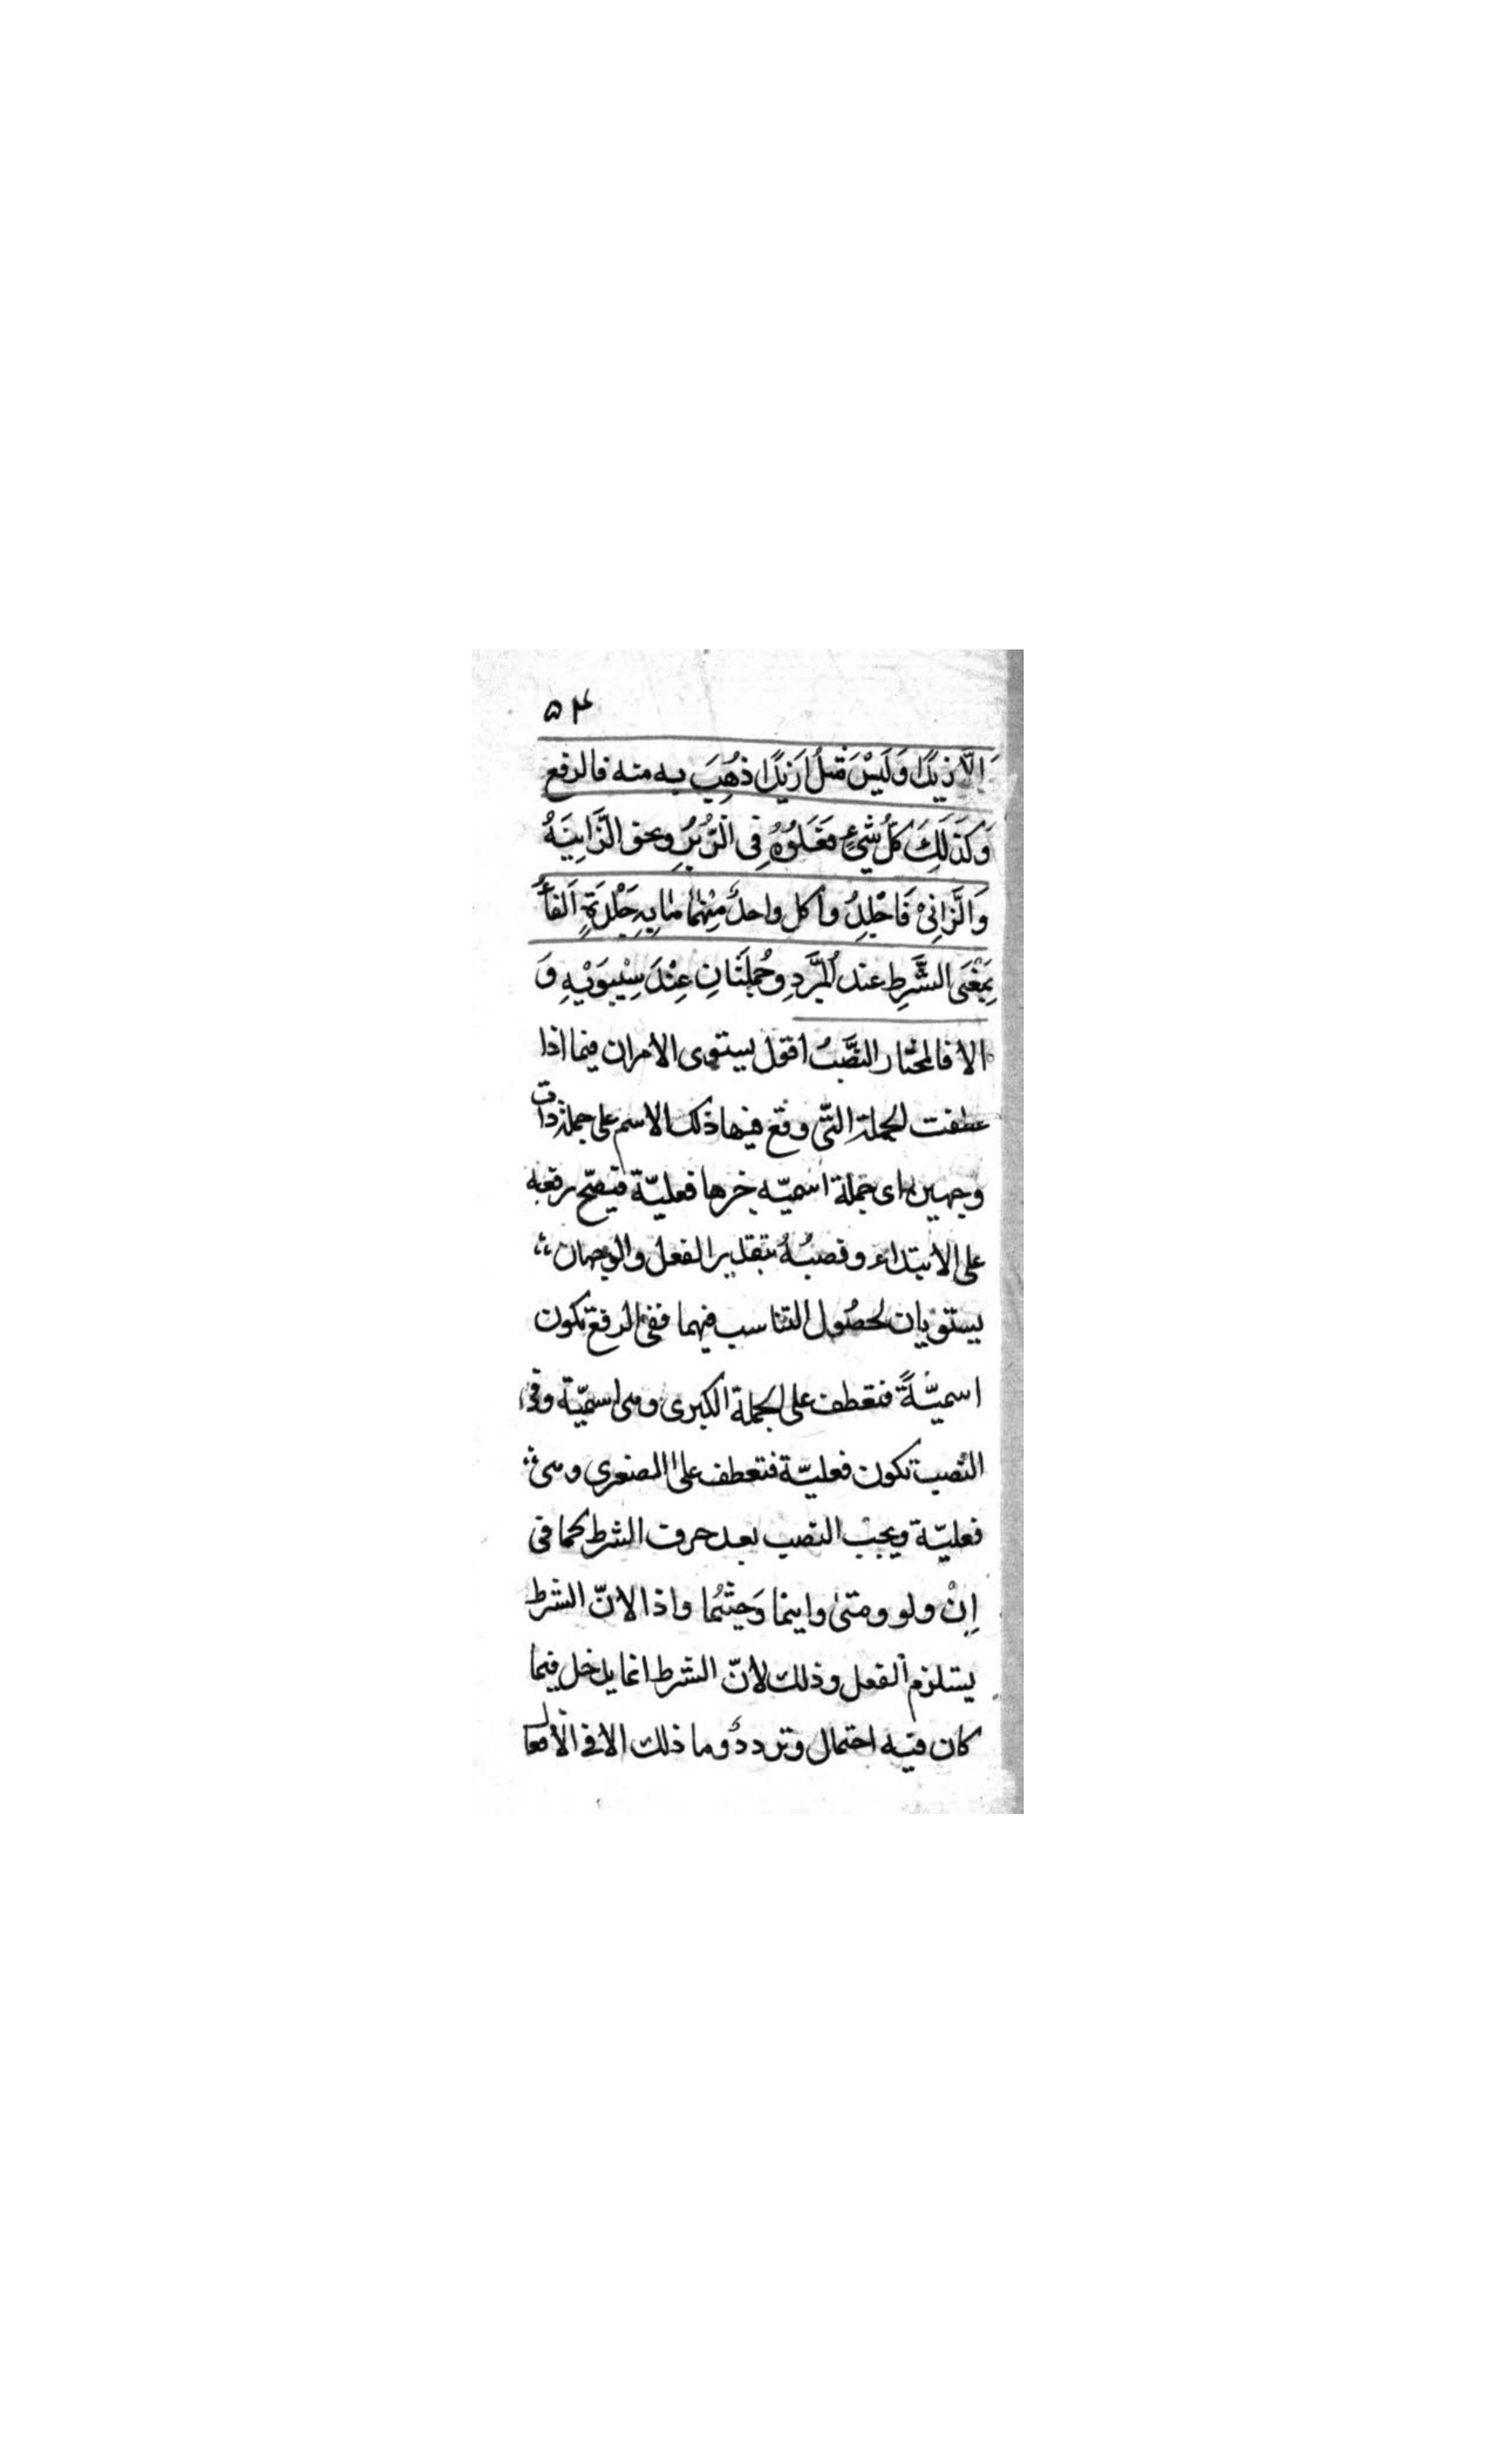 ۵۴
اَلّا زَيْدًا وَلَيْسَ مثلُ ازَيْدًا ذُهِبَ به منه فالرفع
وَكَذٰلِكَ كُلُّ شَيْءٍ فَعَلُوْهُ فِى الزُّبُرِ ونحو الزَّانِيَةُ
وَالزَّانِىْ فَاجْلِدُوا كل واحدٍ مِنْهُمَا مِايةَ جَلْدَةٍ اَلْفَاُ
بِمَعْنَى الشَّرطِ عند المُبَرَّدِ وجُمْلَتَانِ عِنْدَ سِيْبَوَيْهِ وَ
الا فالمختار النَّصَبُ اقول يستوى الامران فيما اذا
عطفت الجملة التّى وقع فيها ذلك الاسم على جملة ذات
وجهين اى جملة اسميّه خبرها فعليّة فيصّح رفعه
على الابتداء ونصبُهُ بتقدير الفعل والوجهان
يستويان لحصُول التناسب فيهما ففى الرفع تكون
اسميّةً فتعطف على الجملة الكبرى وهى اسميّة وفى
النصب تكون فعليّة فتعطف على الصغرى وهى
فعليّة ويجب النصب بعد حرف الشرط كما فى
اِنْ ولو ومتىٰ واينما وَحيثُما واذا لانّ الشرط
يستلزم الفعل وذلك لانّ الشرط انما يدخل فيما
كان فيه احتمال وتردد وما ذلك الا فى الافعال